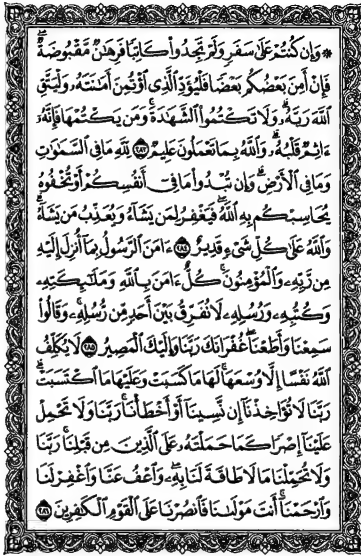 ۞ وَإِن كُنتُمْ عَلَىٰ سَفَرٍ وَلَمْ تَجِدُوا۟ كَاتِبًا فَرِهَٰنٌ مَّقْبُوضَةٌ ۖ
فَإِنْ أَمِنَ بَعْضُكُم بَعْضًا فَلْيُؤَدِّ ٱلَّذِى ٱؤْتُمِنَ أَمَٰنَتَهُۥ وَلْيَتَّقِ
ٱللَّهَ رَبَّهُۥ ۗ وَلَا تَكْتُمُوا۟ ٱلشَّهَٰدَةَ ۚ وَمَن يَكْتُمْهَا فَإِنَّهُۥٓ
ءَاثِمٌ قَلْبُهُۥ ۗ وَٱللَّهُ بِمَا تَعْمَلُونَ عَلِيمٌ ﴿٢٨٣﴾ لِّلَّهِ مَا فِى ٱلسَّمَٰوَٰتِ
وَمَا فِى ٱلْأَرْضِ ۗ وَإِن تُبْدُوا۟ مَا فِىٓ أَنفُسِكُمْ أَوْ تُخْفُوهُ
يُحَاسِبْكُم بِهِ ٱللَّهُ ۖ فَيَغْفِرُ لِمَن يَشَآءُ وَيُعَذِّبُ مَن يَشَآءُ ۗ
وَٱللَّهُ عَلَىٰ كُلِّ شَىْءٍ قَدِيرٌ ﴿٢٨٤﴾ ءَامَنَ ٱلرَّسُولُ بِمَآ أُنزِلَ إِلَيْهِ
مِن رَّبِّهِۦ وَٱلْمُؤْمِنُونَ ۚ كُلٌّ ءَامَنَ بِٱللَّهِ وَمَلَٰٓئِكَتِهِۦ
وَكُتُبِهِۦ وَرُسُلِهِۦ لَا نُفَرِّقُ بَيْنَ أَحَدٍ مِّن رُّسُلِهِۦ ۚ وَقَالُوا۟
سَمِعْنَا وَأَطَعْنَا ۖ غُفْرَانَكَ رَبَّنَا وَإِلَيْكَ ٱلْمَصِيرُ ﴿٢٨٥﴾ لَا يُكَلِّفُ
ٱللَّهُ نَفْسًا إِلَّا وُسْعَهَا ۚ لَهَا مَا كَسَبَتْ وَعَلَيْهَا مَا ٱكْتَسَبَتْ ۗ
رَبَّنَا لَا تُؤَاخِذْنَآ إِن نَّسِينَآ أَوْ أَخْطَأْنَا ۚ رَبَّنَا وَلَا تَحْمِلْ
عَلَيْنَآ إِصْرًا كَمَا حَمَلْتَهُۥ عَلَى ٱلَّذِينَ مِن قَبْلِنَا ۚ رَبَّنَا
وَلَا تُحَمِّلْنَا مَا لَا طَاقَةَ لَنَا بِهِۦ ۖ وَٱعْفُ عَنَّا وَٱغْفِرْ لَنَا
وَٱرْحَمْنَآ ۚ أَنتَ مَوْلَىٰنَا فَٱنصُرْنَا عَلَى ٱلْقَوْمِ ٱلْكَٰفِرِينَ ﴿٢٨٦﴾